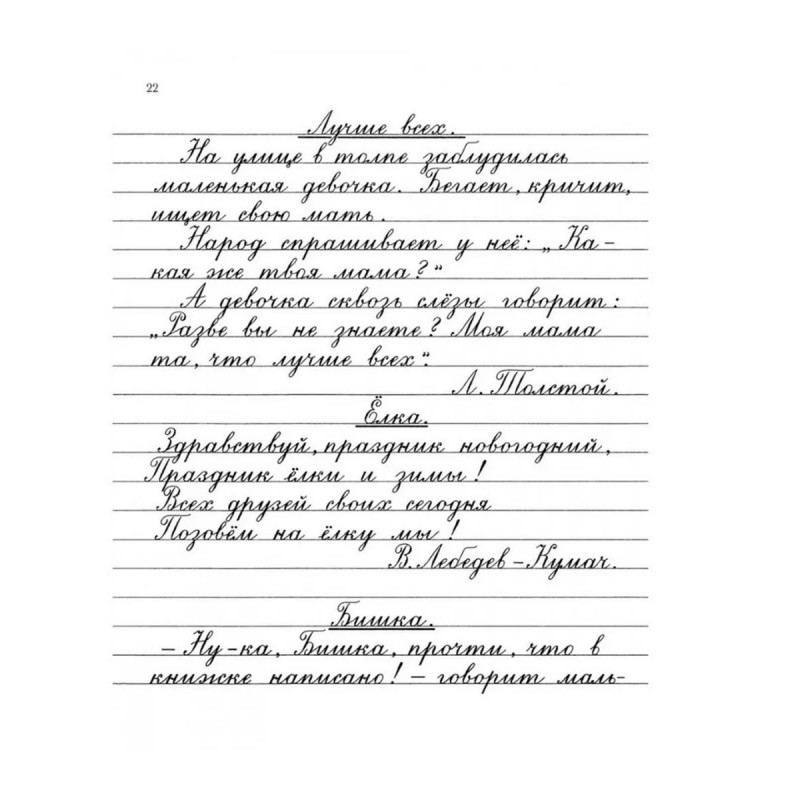 22
Лучше всех.
На улице в толпе заблудилась
маленькая девочка. Бегает, кричит,
ищет свою мать.
Народ спрашивает у неё: „Ка-
кая же твоя мама?“
А девочка сквозь слёзы говорит:
„Разве вы не знаете? Моя мама
та, что лучше всех“.
Л. Толстой.
Ёлка.
Здравствуй, праздник новогодний,
Праздник ёлки и зимы!
Всех друзей своих сегодня
Позовём на ёлку мы!
В. Лебедев-Кумач.
Бишка.
– Ну-ка, Бишка, прочти, что в
книжке написано! – говорит маль-